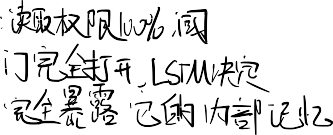 读取权限100%阀
门完全打开,LSTM决定
完全暴露它的内部记忆